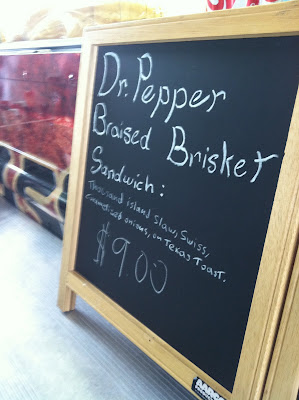 Dr. Pepper
Braised Brisket
Sandwich:
Thousand island Slaw, Swiss,
caramelized onions, on Texas Toast.
$9.00